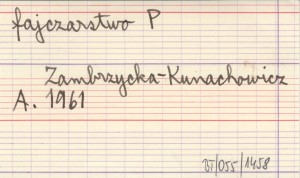 fajczarstwo P
Zambrzycka-Kunachowicz
A. 1961
BJ/055/1458